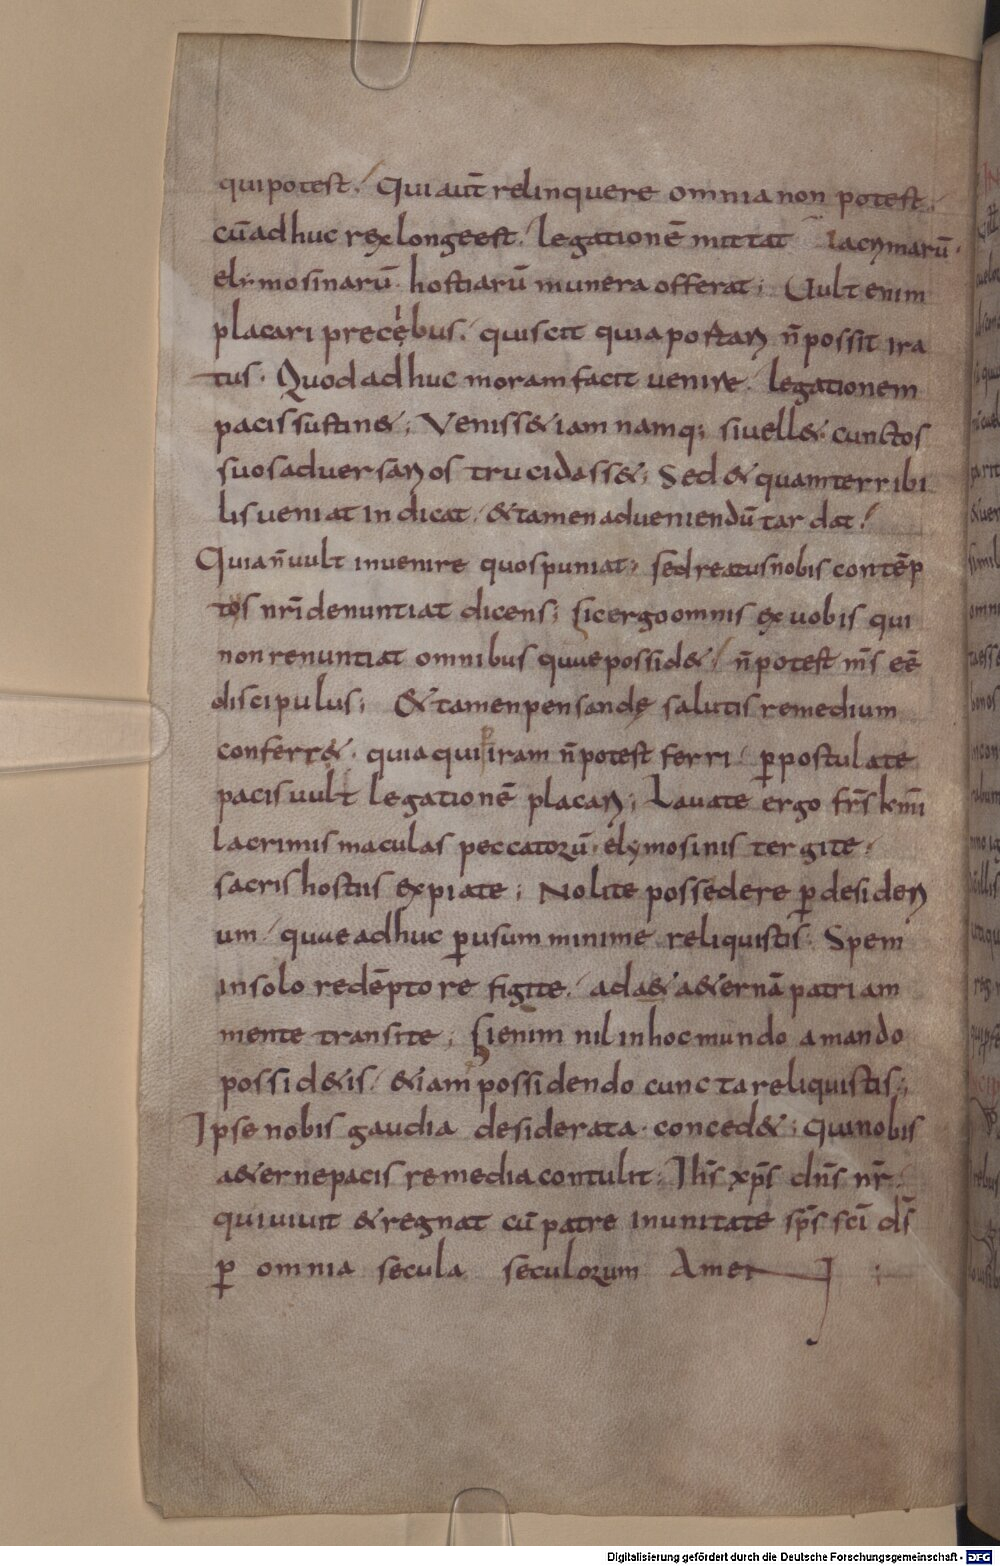 qui potest. Qui aut̄ relinquere omnia non potest.
cū ad huc rex longe est. legationē mittat lacrymarū.
elymosinarū hostiarū munera offerat; Uult enim
placari precębus. qui scit quia portari n̄ possit ira
tus. Quod ad huc moram facit uenire. legationem
pacis sustin&; Veniss& iam namq; si uell& cunctos
suos aduersarios trucidass&; Sed & quam terribi
lis ueniat indicat. & tamen adueniendū tardat.
Quia n̄ uult inuenire quos puniat. sed reatus nobis contēp
tus nr̄i denuntiat dicens; Sic ergo omnis ex uobis qui
non renuntiat omnibus quae possid&. n̄ potest m̄s eē
discipulus; & tamen pensandę salutis remedium
conferr&. quia qui iram n̄ potest ferri. ꝑ postulate
pacis uult legationē placari; Lauate ergo fr̄s km̄i
lacrimis maculas peccatorū. elymosinis tergite.
sacris hostiis expiate; Nolite possedere ꝑ desideri
um. quae adhuc ꝑ usum minime reliquistis. Spem
in solo redēptore figite. ad & a&ernā patriam
mente transite; Si enim nil in hoc mundo amando
possid&is. &iam possidendo cuncta reliquistis;
Ipse nobis gaudia desiderata conced&; qui nobis
a&erne pacis remedia contulit. Ih̄s xp̄s dn̄s nr̄.
qui uiuit & regnat cū patre in unitate sp̄s sc̄i d̄s
ꝑ omnia secula seculorum Amen;
Digitalisierung gefördert durch die Deutsche Forschungsgemeinschaft - DFG